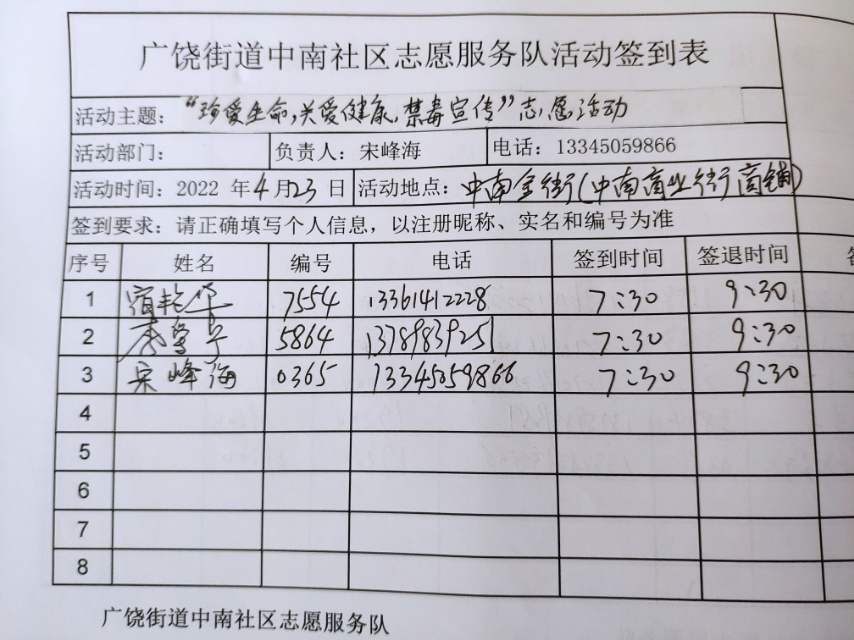 广饶街道中南社区志愿服务队活动签到表
活动主题：“珍爱生命,关爱健康,禁毒宣传”志愿活动
活动部门： 负责人：宋峰海 电话：13345059866
活动时间：2022 年4月23日 活动地点：中南金街(中南商业街商铺)
签到要求：请正确填写个人信息，以注册昵称、实名和编号为准
序号 姓名 编号 电话 签到时间 签退时间
1 宿艳华 7554 13361412228 7:30 9:30
2 5864 13789839251 7:30 9:30
3 宋峰海 0365 13345059866 7:30 9:30
4
5
6
7
8
广饶街道中南社区志愿服务队